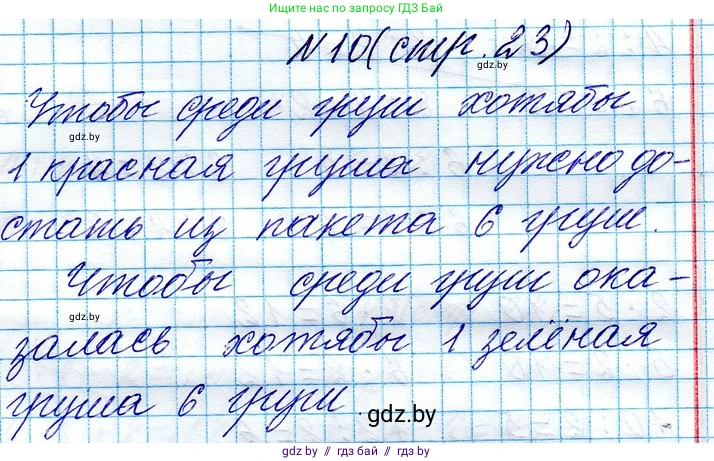 Ищите нас в поисковиках по запросу ГДЗ Бай
N10(стр.23)
gdz.by
Чтобы среди груш хотябы
gdz.by
1 красная груша нужно до-
стать из пакета 6 груш.
Чтобы среди груш ока-
gdz.by
залась хотябы 1 зелёная
груша 6 груш
gdz.by
gdz.by // гдз бай // gdz.by // гдз бай // gdz.by